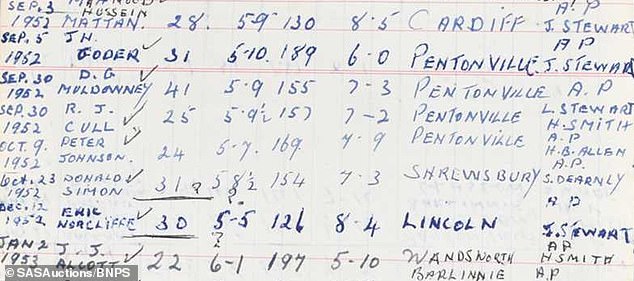 SEP. 3 MAHMOOD HUSSEIN A.P
1952 MATTAN. 28. 5-9 130 8-5 CARDIFF J. STEWART
SEP. 5 J.H. A P
1952 GODER 31 5-10. 189 6-0 PENTONVILLE. J. STEWART
SEP. 30 D.G
1952 MULDOWNEY 41 5-9 155 7-3 PENTONVILLE A.P
SEP. 30 R. J. 25 5-9½ 157 7-2 PENTONVILLE L. STEWART
1952 CULL H. SMITH
OCT. 9. PETER 24 5-7. 169. 7-9 PENTONVILLE A.P
1952 JOHNSON. H.B. ALLEN
A.P.
Oct. 23 DONALD 31 ? 5 8½ 154 7-3 SHREWSBURY S. DEARNLY
1952 SIMON ? A P
DEC. 12 ERIC
1952 NORCLIFFE 30 5-5 126 8-4 LINCOLN J. STEWART
? A P
JAN 2 J. J. WANDSWORTH H SMITH
1953 ALCOTT 22 6-1 197 5-10 BARLINNIE A.P
©SASAuctions/BNPS